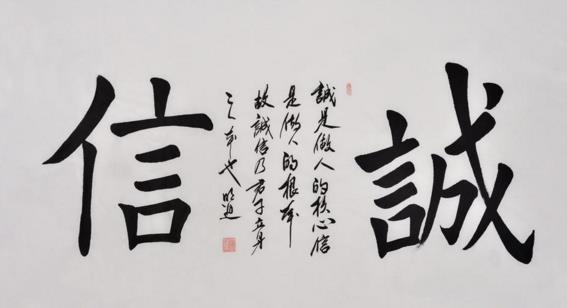 誠
誠是做人的核心信
是做人的根本
故誠信乃君子立身
之本也
信